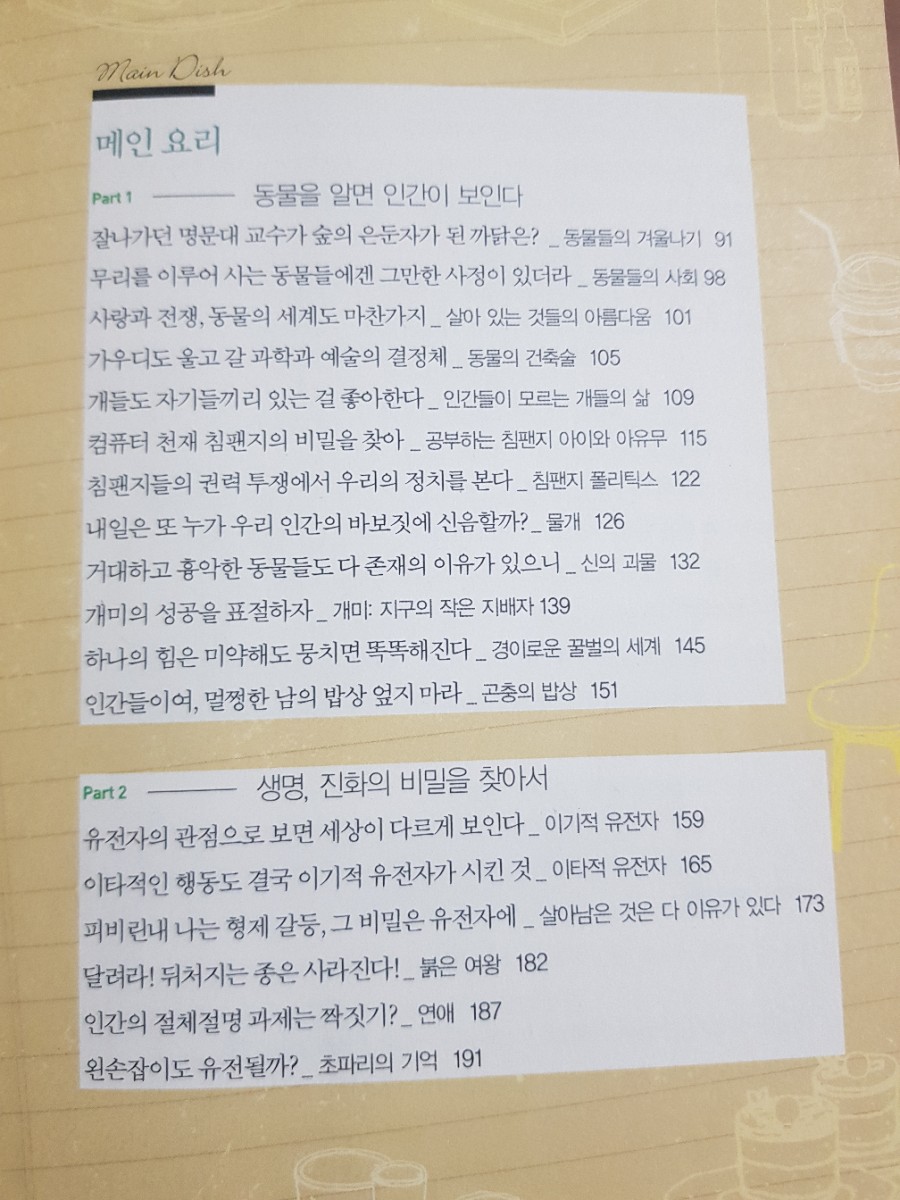 Main Dish
메인 요리
Part 1 동물을 알면 인간이 보인다
잘나가던 명문대 교수가 숲의 은둔자가 된 까닭은? _ 동물들의 겨울나기 91
무리를 이루어 사는 동물들에겐 그만한 사정이 있더라 _ 동물들의 사회 98
사랑과 전쟁, 동물의 세계도 마찬가지 _ 살아 있는 것들의 아름다움 101
가우디도 울고 갈 과학과 예술의 결정체 _ 동물의 건축술 105
개들도 자기들끼리 있는 걸 좋아한다 _ 인간들이 모르는 개들의 삶 109
컴퓨터 천재 침팬지의 비밀을 찾아 _ 공부하는 침팬지 아이와 아유무 115
침팬지들의 권력 투쟁에서 우리의 정치를 본다 _ 침팬지 폴리틱스 122
내일은 또 누가 우리 인간의 바보짓에 신음할까? _ 물개 126
거대하고 흉악한 동물들도 다 존재의 이유가 있으니 _ 신의 괴물 132
개미의 성공을 표절하자 _ 개미: 지구의 작은 지배자 139
하나의 힘은 미약해도 뭉치면 똑똑해진다 _ 경이로운 꿀벌의 세계 145
인간들이여, 멀쩡한 남의 밥상 엎지 마라 _ 곤충의 밥상 151
Part 2 생명, 진화의 비밀을 찾아서
유전자의 관점으로 보면 세상이 다르게 보인다 _ 이기적 유전자 159
이타적인 행동도 결국 이기적 유전자가 시킨 것 _ 이타적 유전자 165
피비린내 나는 형제 갈등, 그 비밀은 유전자에 _ 살아남은 것은 다 이유가 있다 173
달려라! 뒤처지는 종은 사라진다! _ 붉은 여왕 182
인간의 절체절명 과제는 짝짓기? _ 연애 187
왼손잡이도 유전될까? _ 초파리의 기억 191